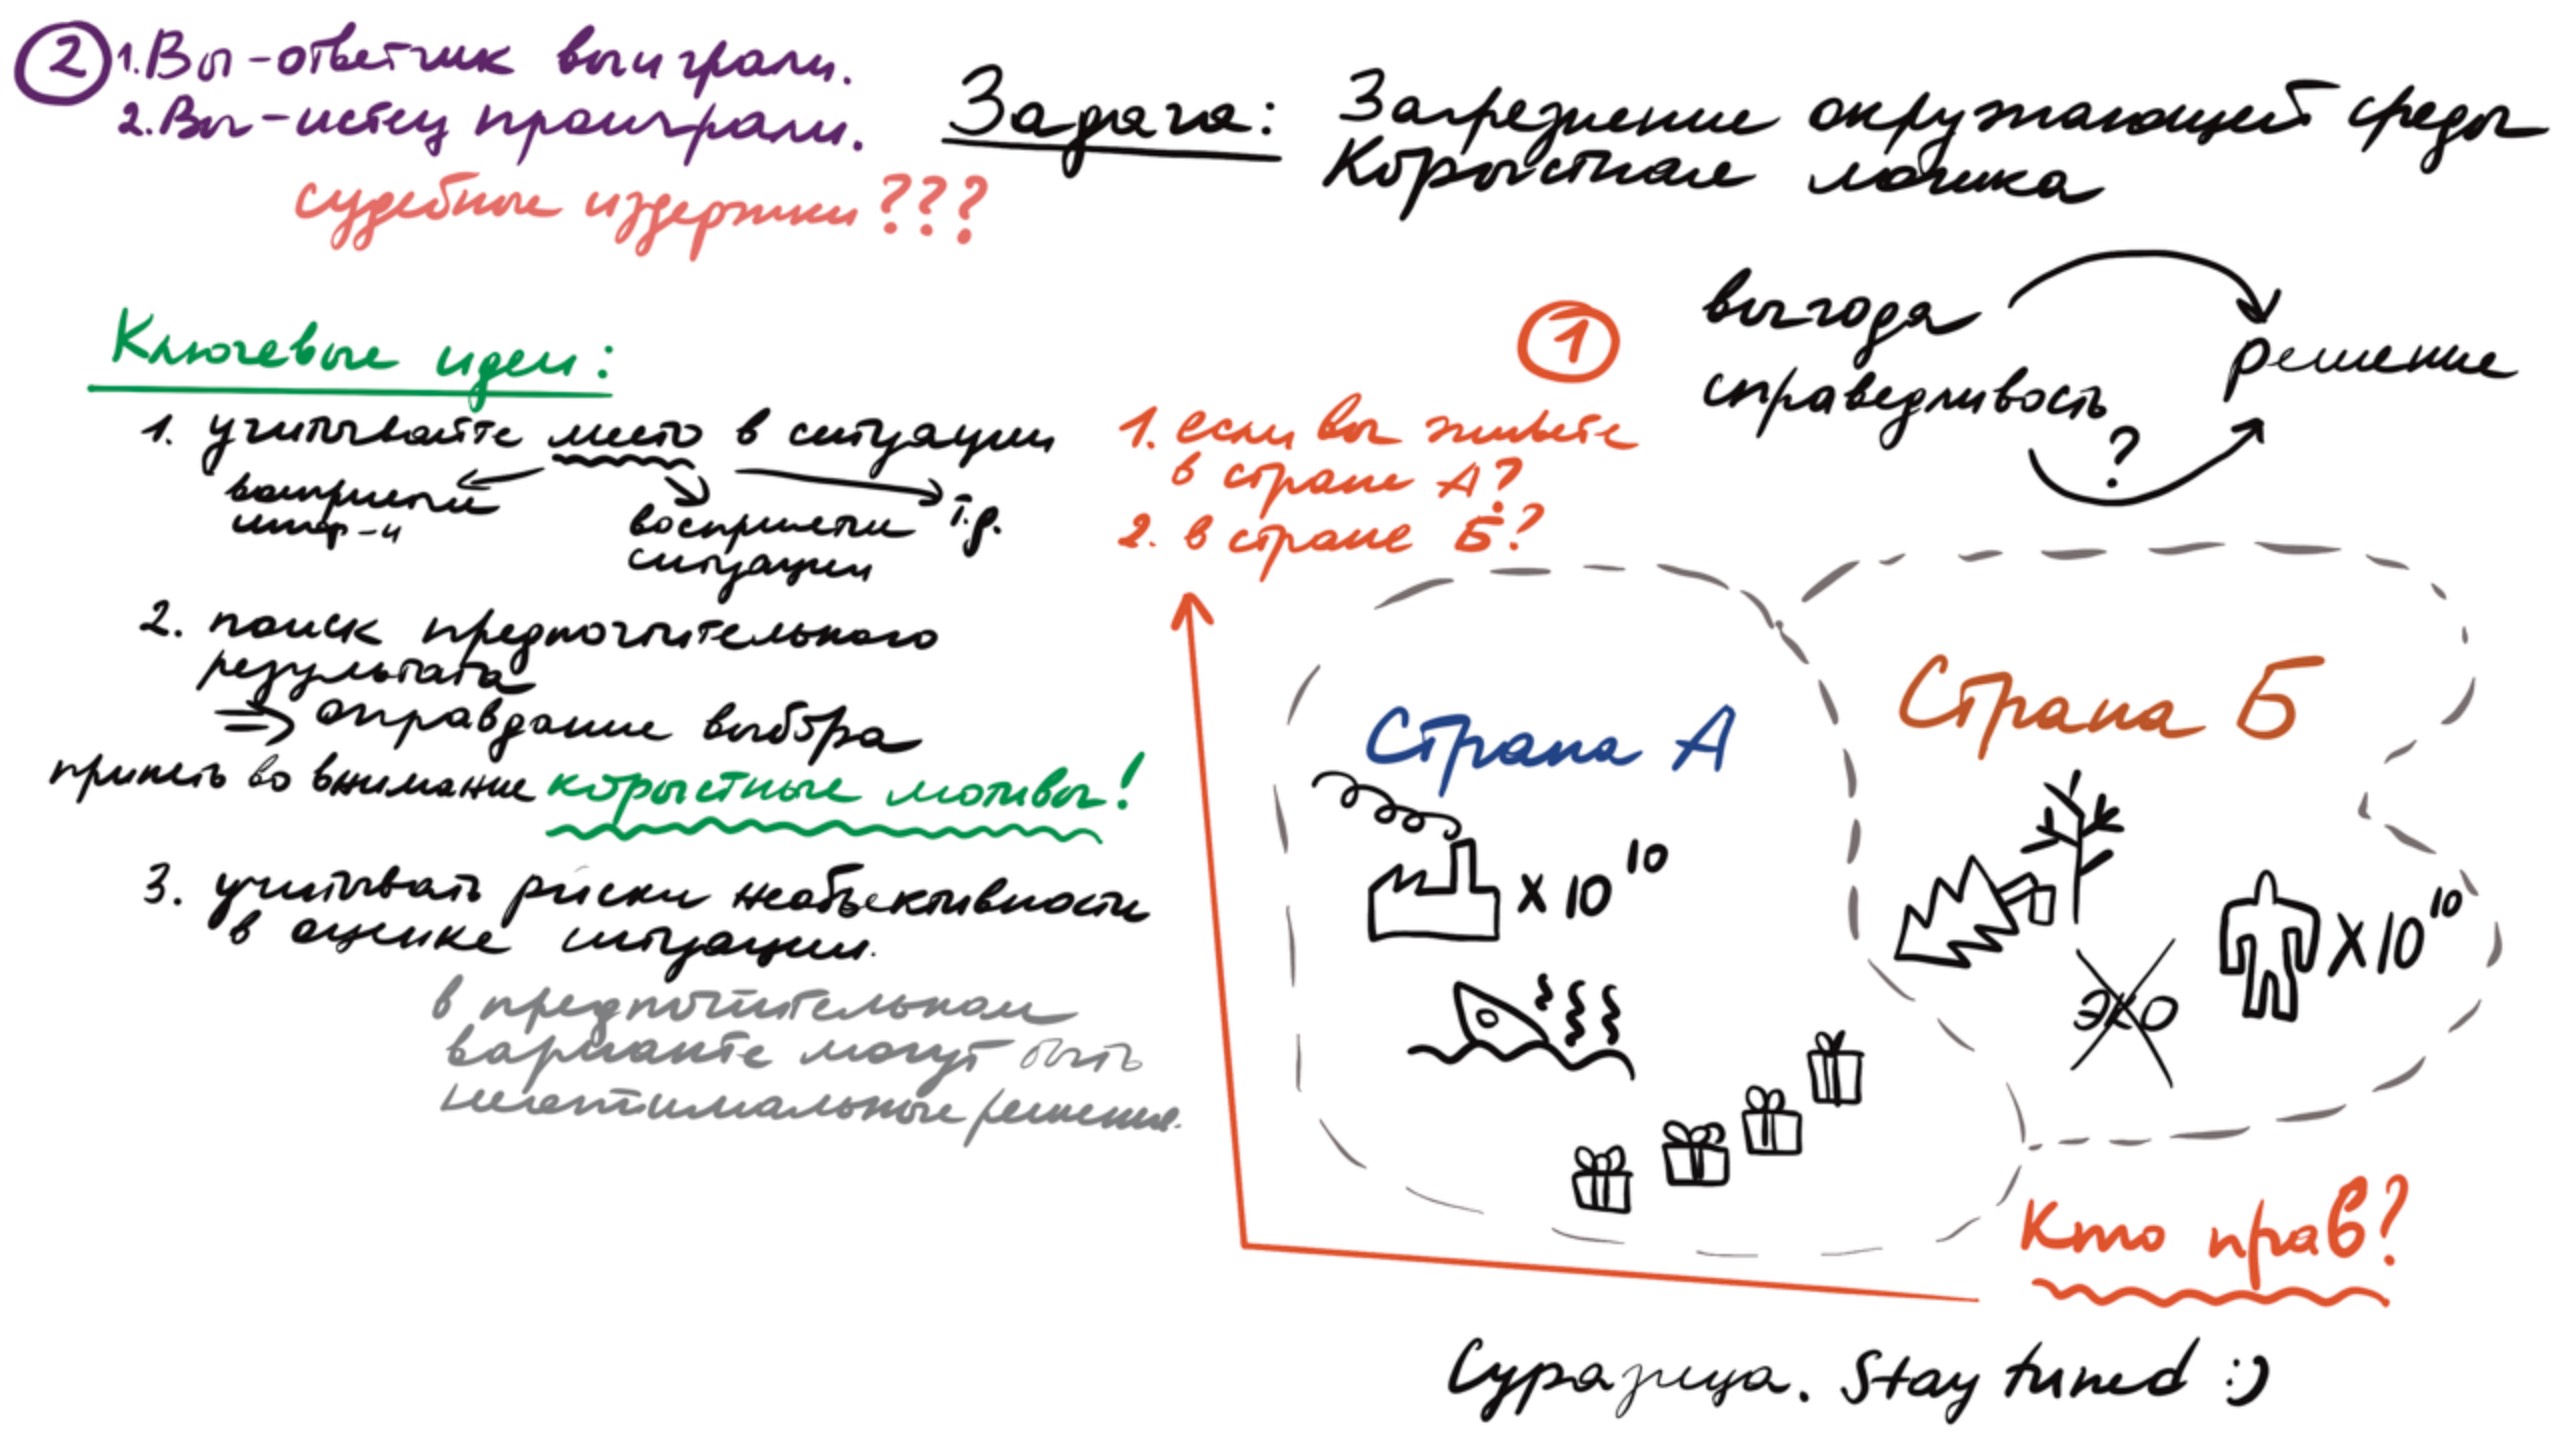 Задача: Загрязнение окружающей среды
Корыстная логика
② 1. Вы - ответчик выиграли.
2. Вы - истец проиграли.
судебные издержки ???
Ключевые идеи:
1. учитывайте место в ситуации
восприятия
инфор-и
восприятии
ситуации
т.д.
2. поиск предпочтительного
результата
=> оправдание выбора
принять во внимание корыстные мотивы!
3. учитывать риски необъективности
в оценке ситуации.
в предпочтительном
варианте могут быть
неоптимальные решения.
①
выгода
справедливость
решение
?
1. если вы живете
в стране А?
2. в стране Б?
Страна А
х 10 10
Страна Б
эко
Х 10 10
Кто прав?
Суразица. Stay tuned :)